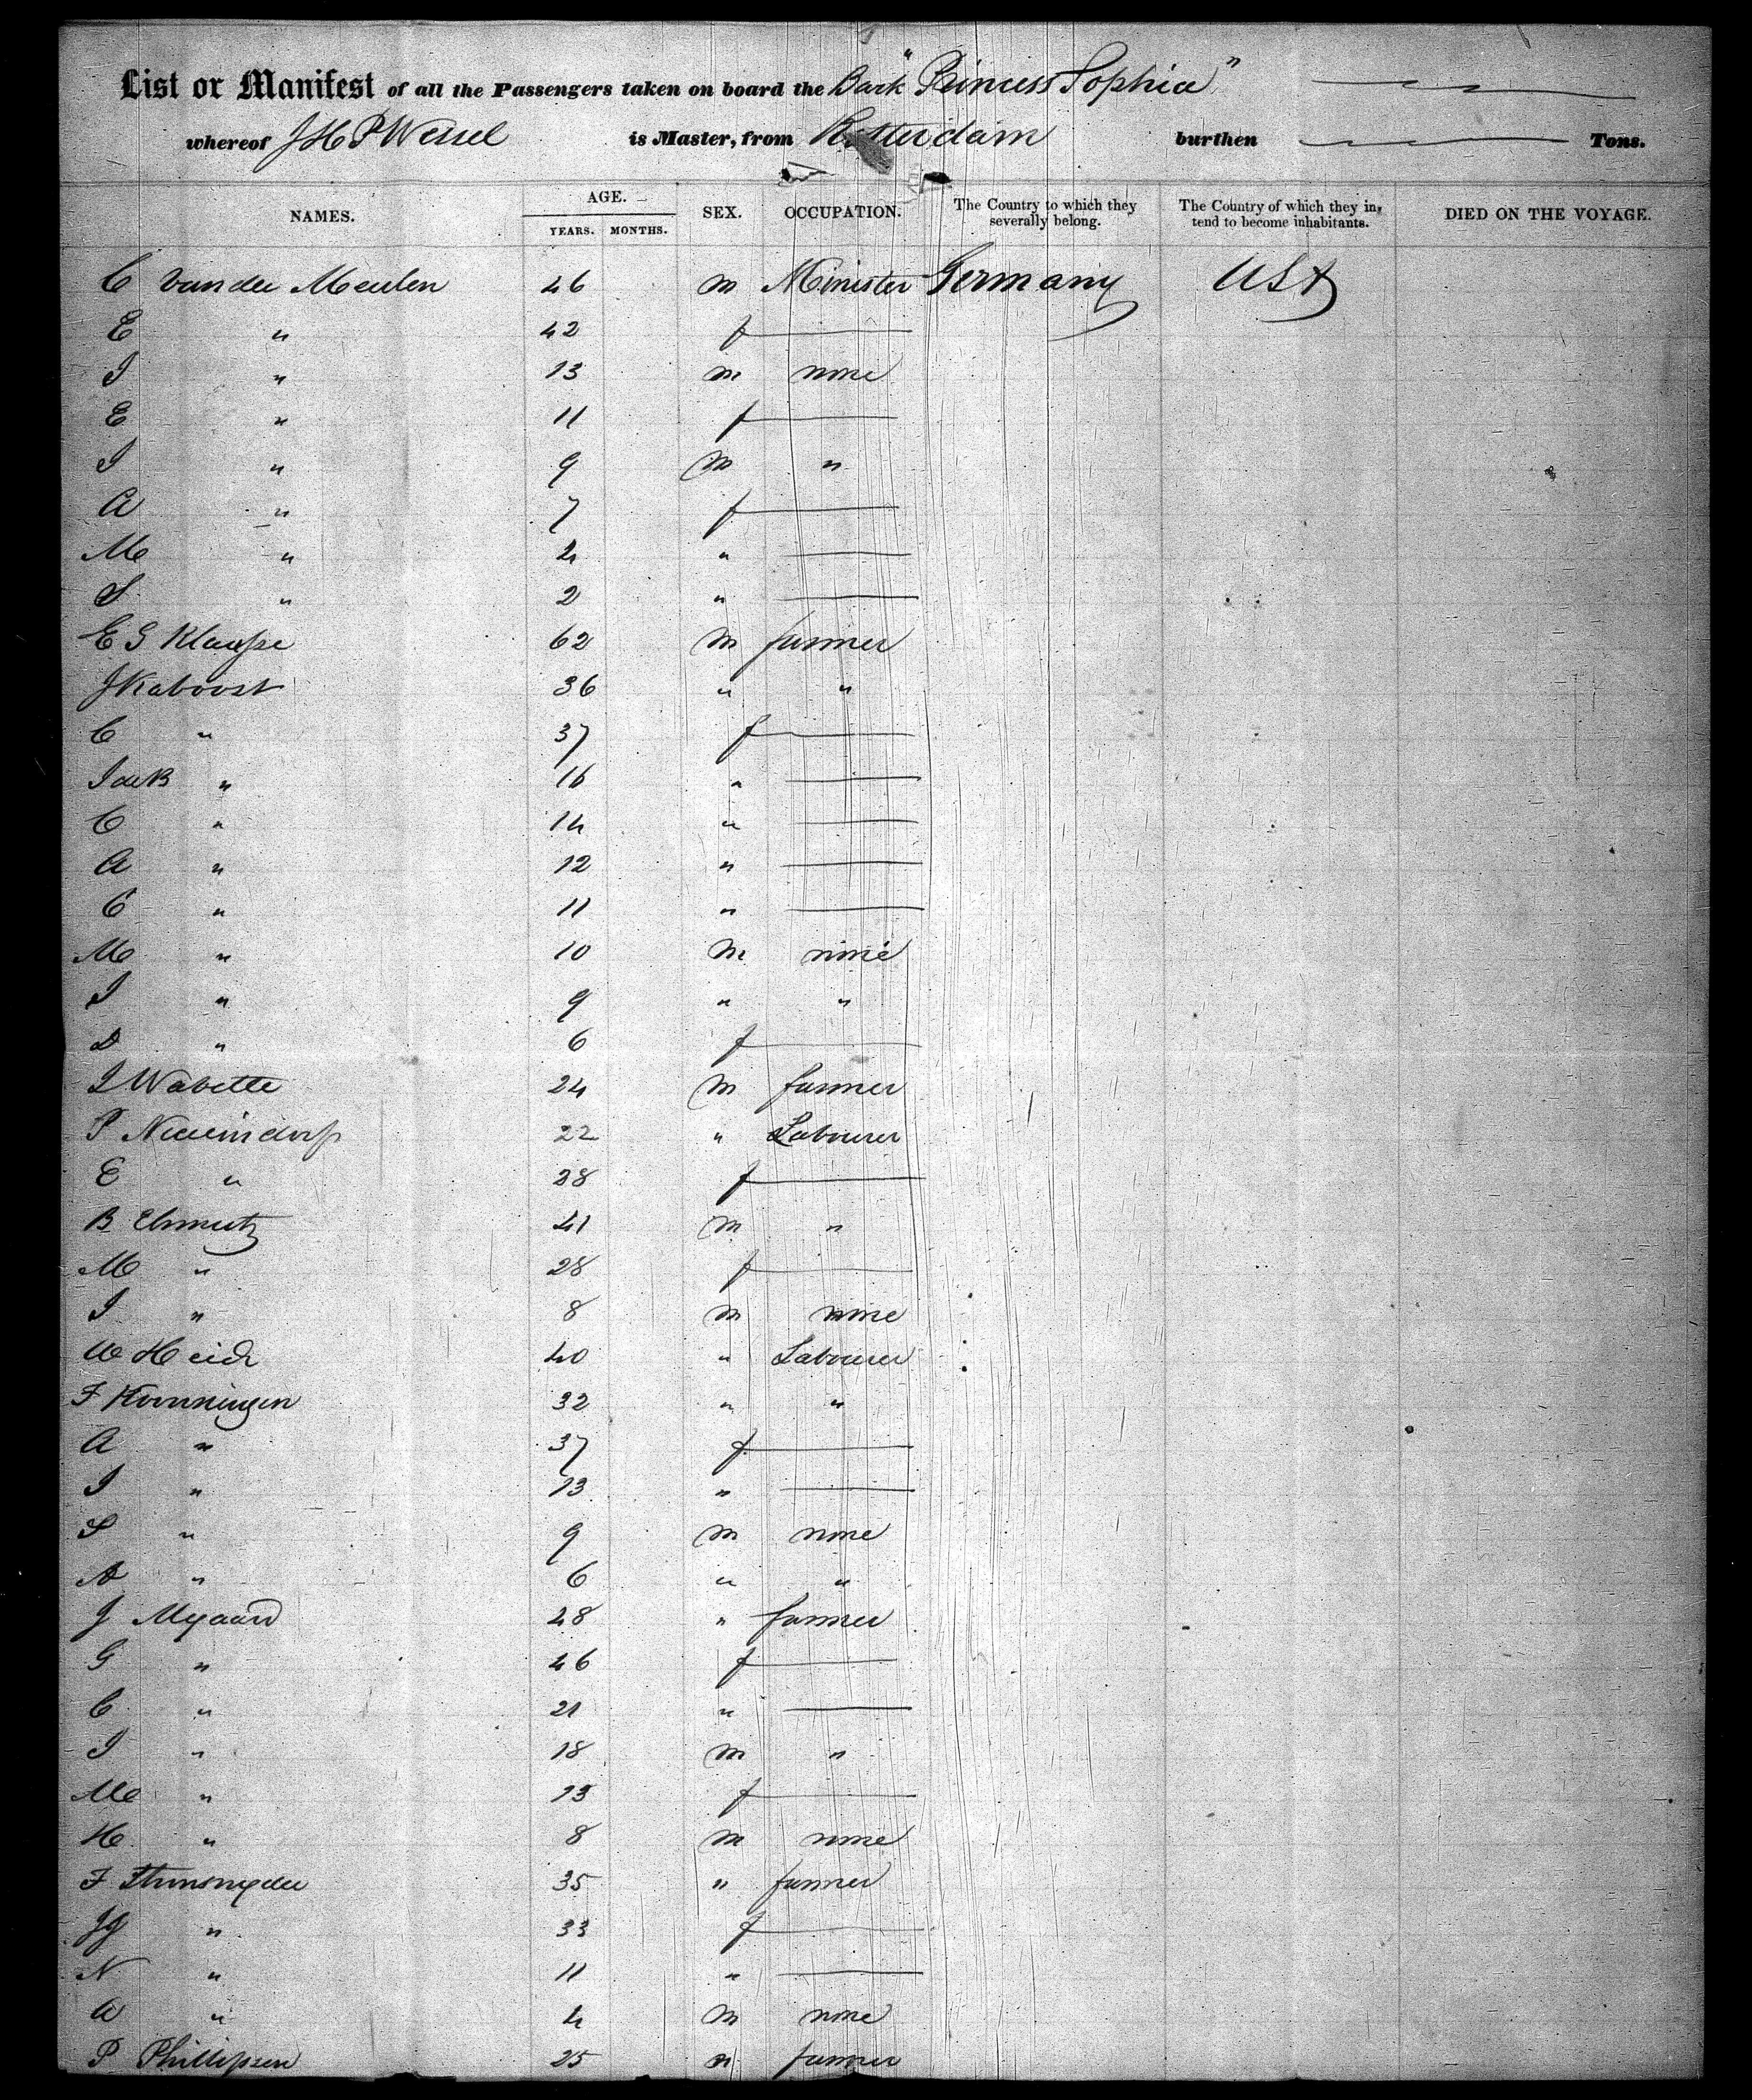 List or Manifest of all the Passengers taken on board the Bark "Princess Sophia"
whereof J H P Wessel is Master, from Rotterdam burthen Tons.
NAMES. AGE. SEX. OCCUPATION. The Country to which they severally belong. The Country of which they intend to become inhabitants. DIED ON THE VOYAGE.
YEARS. MONTHS.
C van der Meulen 46 m Minister Germany USA
E " 42 f
I " 13 m none
E " 11 f
I " 9 m "
A " 7 f
M " 4 "
S " 2 "
E S Klaasse 62 m farmer
J Kaboost 36 " "
C " 37 f
I de B " 16 "
C " 14 "
A " 12 "
C " 11 "
M " 10 m none
I " 9 " "
D " 6 f
I Wabette 24 m farmer
P 22 " Labourer
E " 28 f
B 41 m "
M " 28 f
I " 8 m none
W Heid 40 " Labourer
F Konningen 32 " "
A " 37 f
I " 13 "
S " 9 m none
A " 6 " "
J Mijaard 48 " farmer
G " 46 f
C " 21 "
I " 18 m "
M " 13 f
H " 8 m none
F 35 " farmer
JJ " 33 f
N " 11 "
A " 4 m none
P Phillipsen 25 " farmer